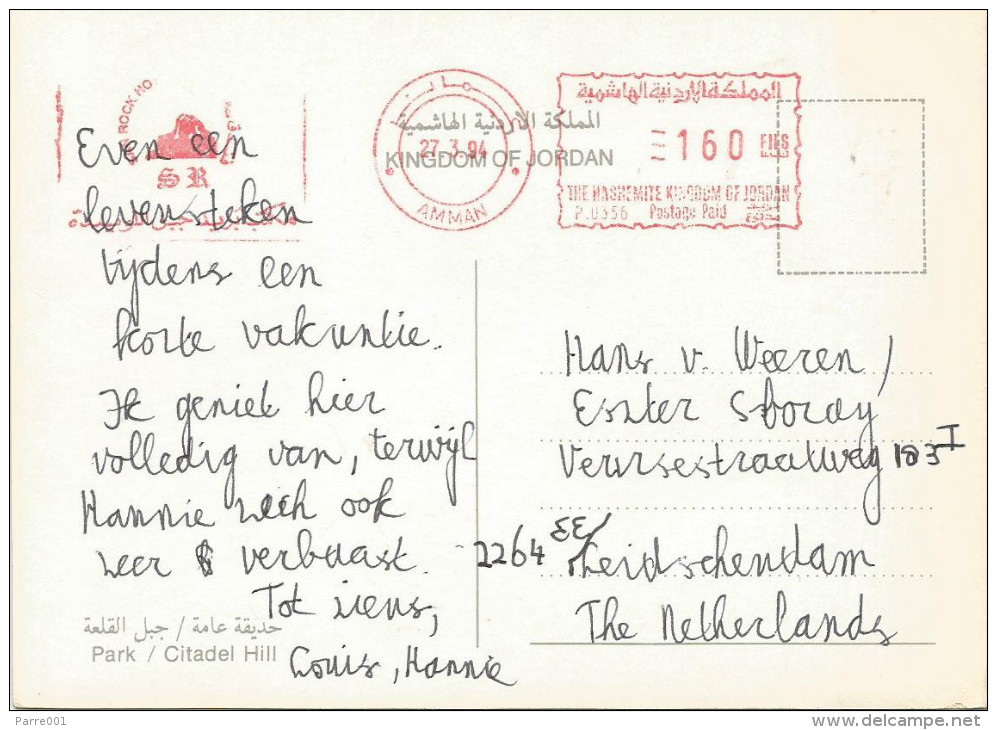 ROCK HO
SR
عمان
27.3.94
AMMAN
المملكة الاردنية الهاشمية
KINGDOM OF JORDAN
المملكة الاردنية الهاشمية
160 FILS
THE HASHEMITE KINGDOM OF JORDAN
P.0356 Postage Paid
Even een
levensteken
tijdens een
korte vakantie.
Ik geniet hier
volledig van, terwijl
Hannie zich ook
zeer verbaast.
Tot ziens,
Louis, Hannie
حديقة عامة / جبل القلعة
Park / Citadel Hill
Hans v. Weeren /
Eszter
Veursestraatweg 183 I
2264 EE/ Leidschendam
The Netherlands
Parre001
www.delcampe.net